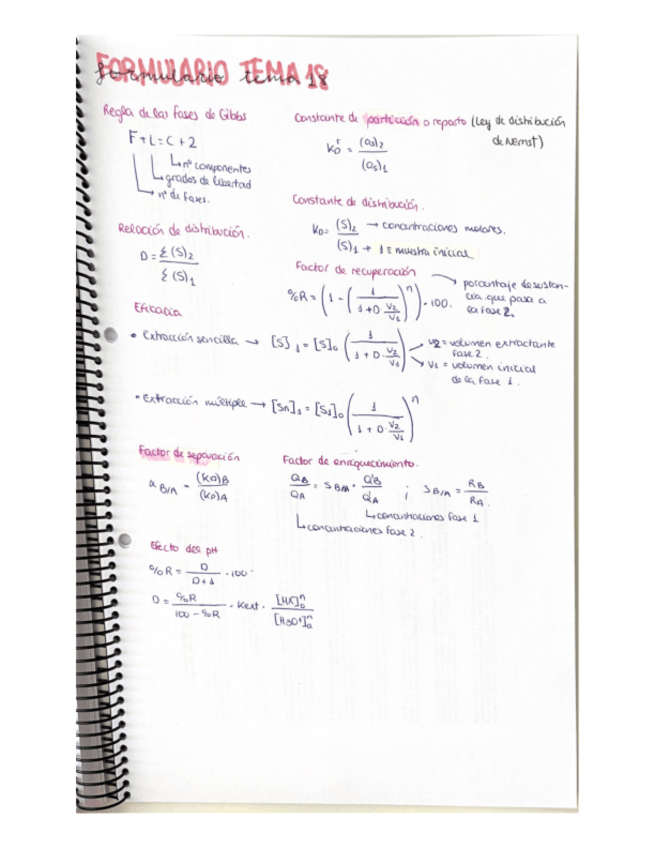 FORMULARIO TEMA 18
formulario tema 18
Regla de las fases de Gibbs
F + L = C + 2
nº componentes
grados de libertad
nº de fases.
Constante de partición o reparto (Ley de distribución
de Nernst)
K_D^r = (a_s)_2 / (a_s)_1
Constante de distribución.
K_D = (S)_2 / (S)_1 → concentraciones molares.
→ 1 = muestra inicial
Relación de distribución.
D = Σ (S)_2 / Σ (S)_1
Factor de recuperación
%R = (1 - (1 / (1 + D · V_2/V_1))^n) · 100.
porcentaje de sustan-
cia que pasa a
la fase 2.
Eficacia
• Extracción sencilla → [S]_1 = [S]_0 (1 / (1 + D · V_2/V_1))
V2 = volumen extractante
fase 2.
V_1 = volumen inicial
de la fase 1.
• Extracción múltiple → [Sn]_1 = [S1]_0 (1 / (1 + D · V_2/V_1))^n
Factor de separación
α_B/A = (K_D)_B / (K_D)_A
Factor de enriquecimiento.
Q_B / Q_A = S_B/A · Q'_B / Q'_A ; S_B/A = R_B / R_A.
concentraciones fase 1
concentraciones fase 2.
Efecto del pH
%R = D / (D + 1) · 100.
D = %R / (100 - %R) · Kext · [HX]_o^n / [H3O+]_a^n